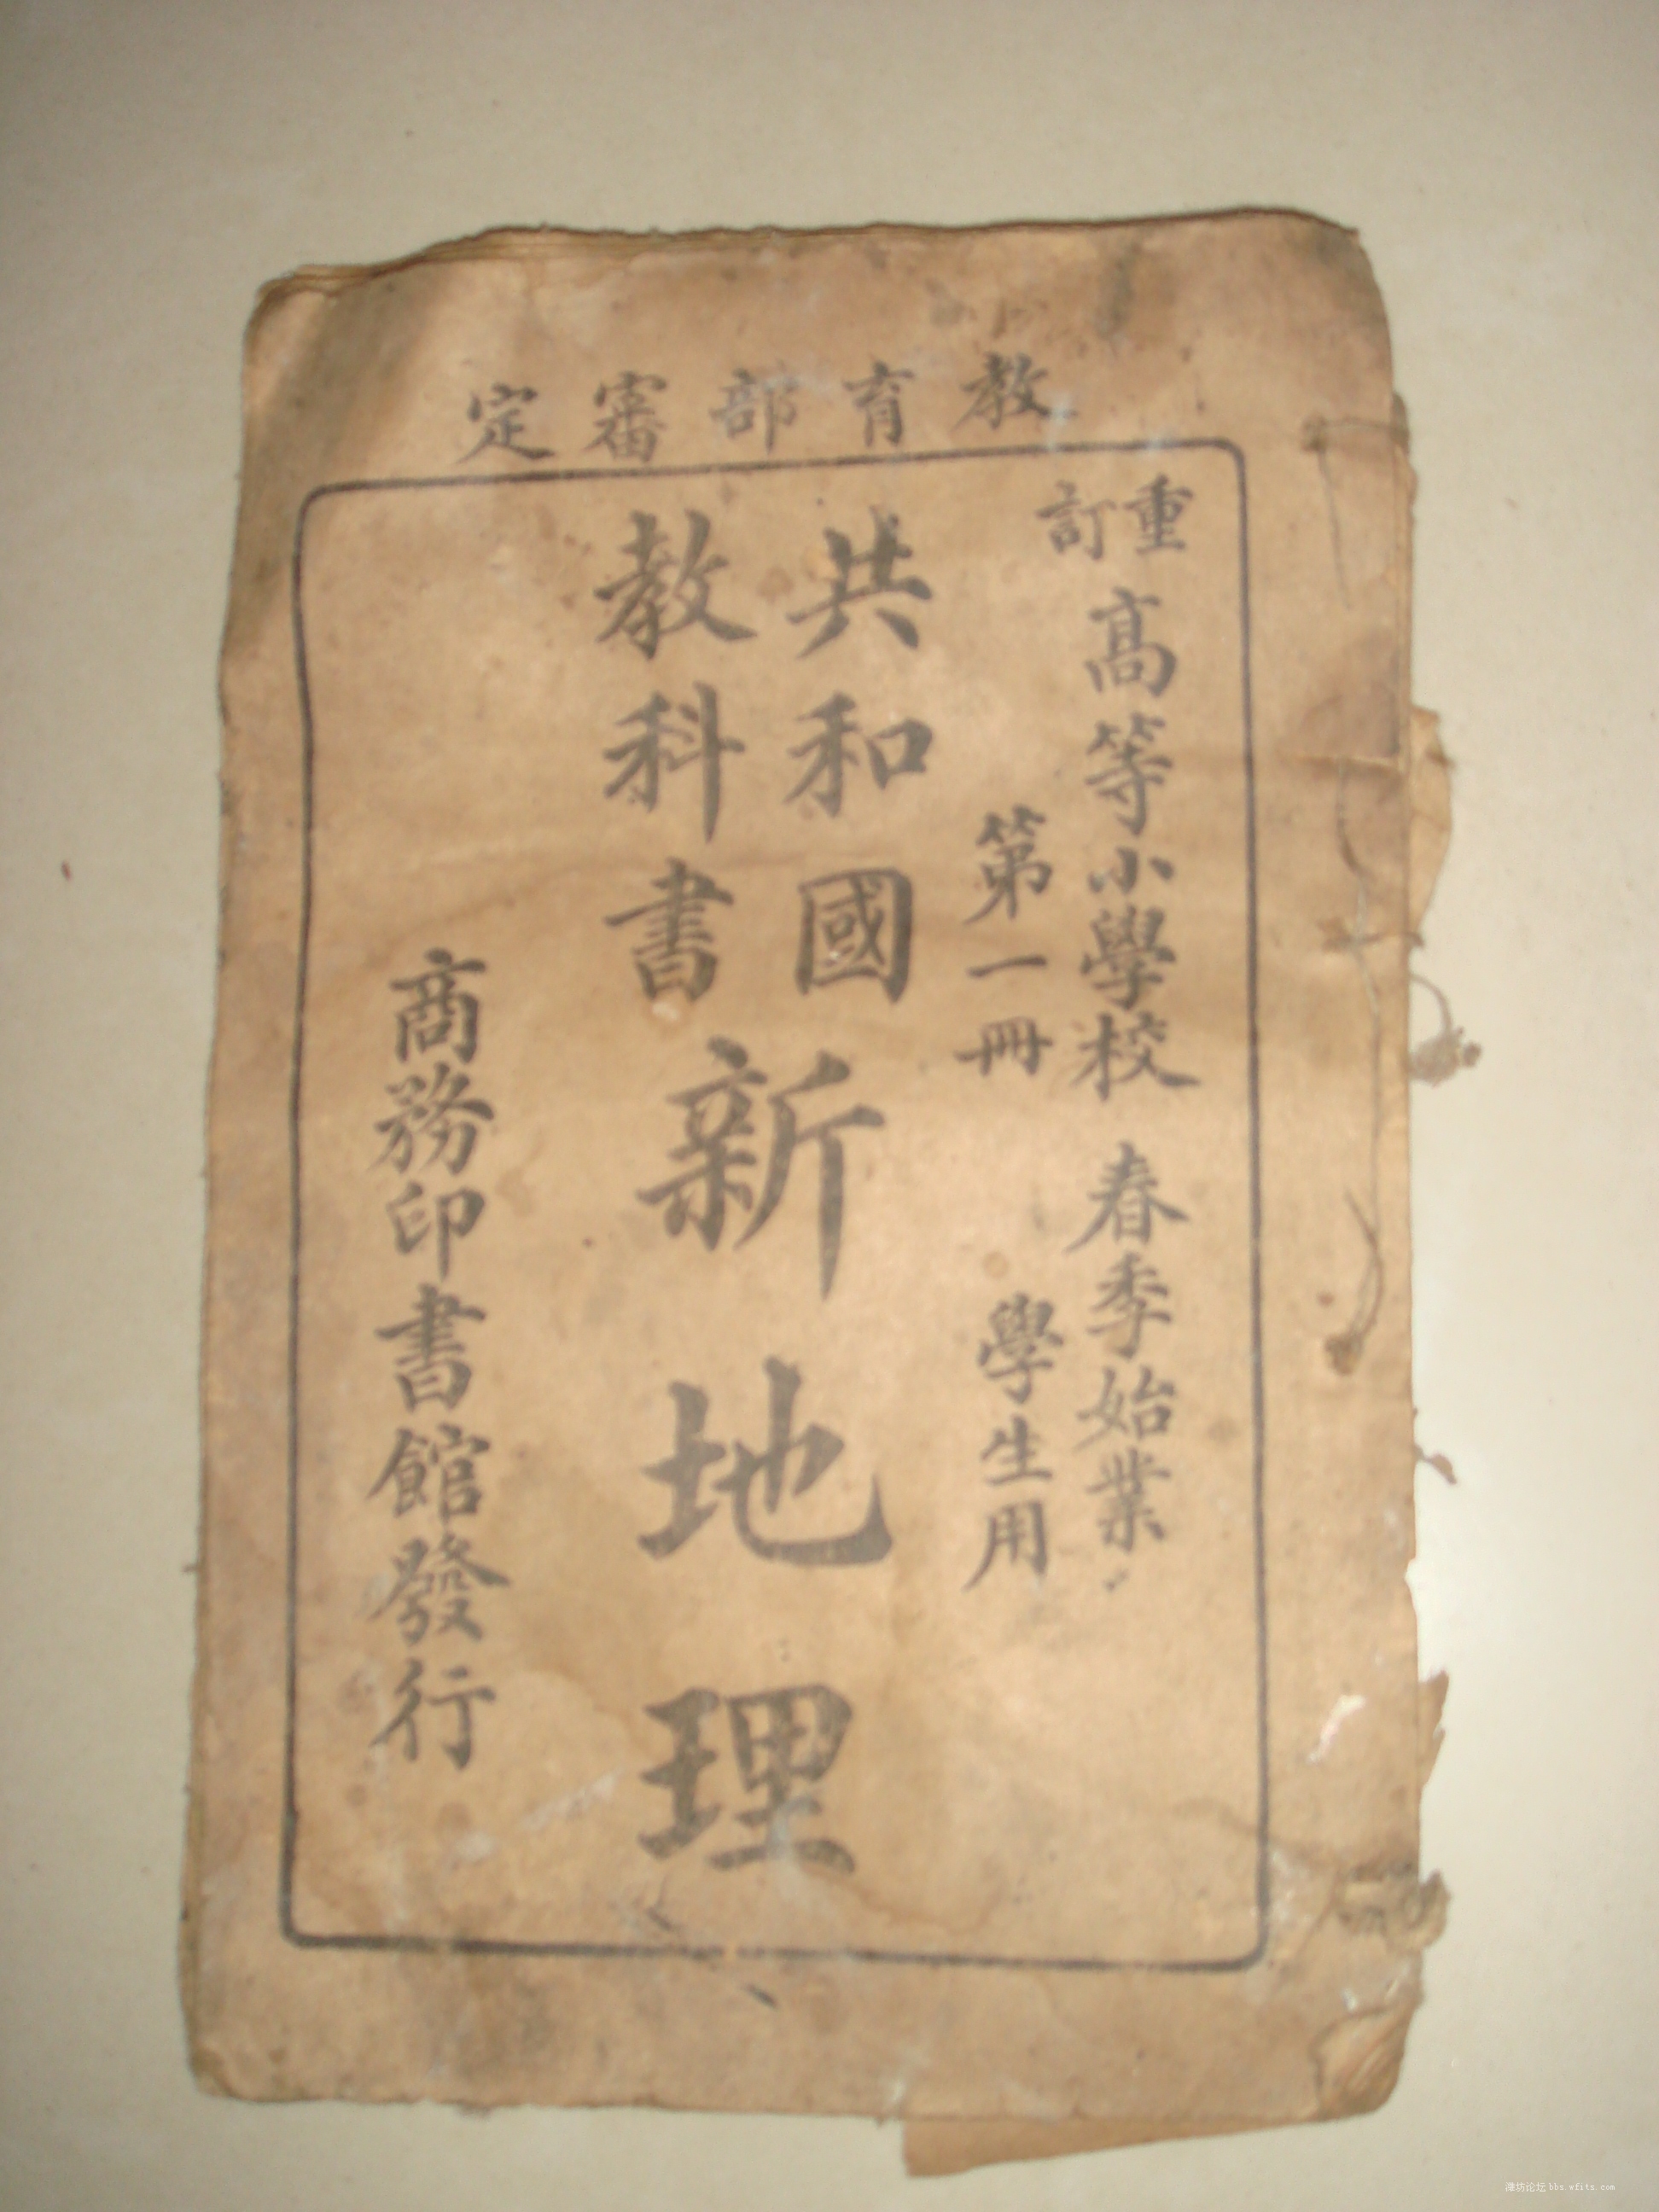 教育部審定
重訂
高等小學校 春季始業
第一冊 學生用
共和國
教科書
新地理
商務印書館發行
潍坊论坛 bbs.wfits.com